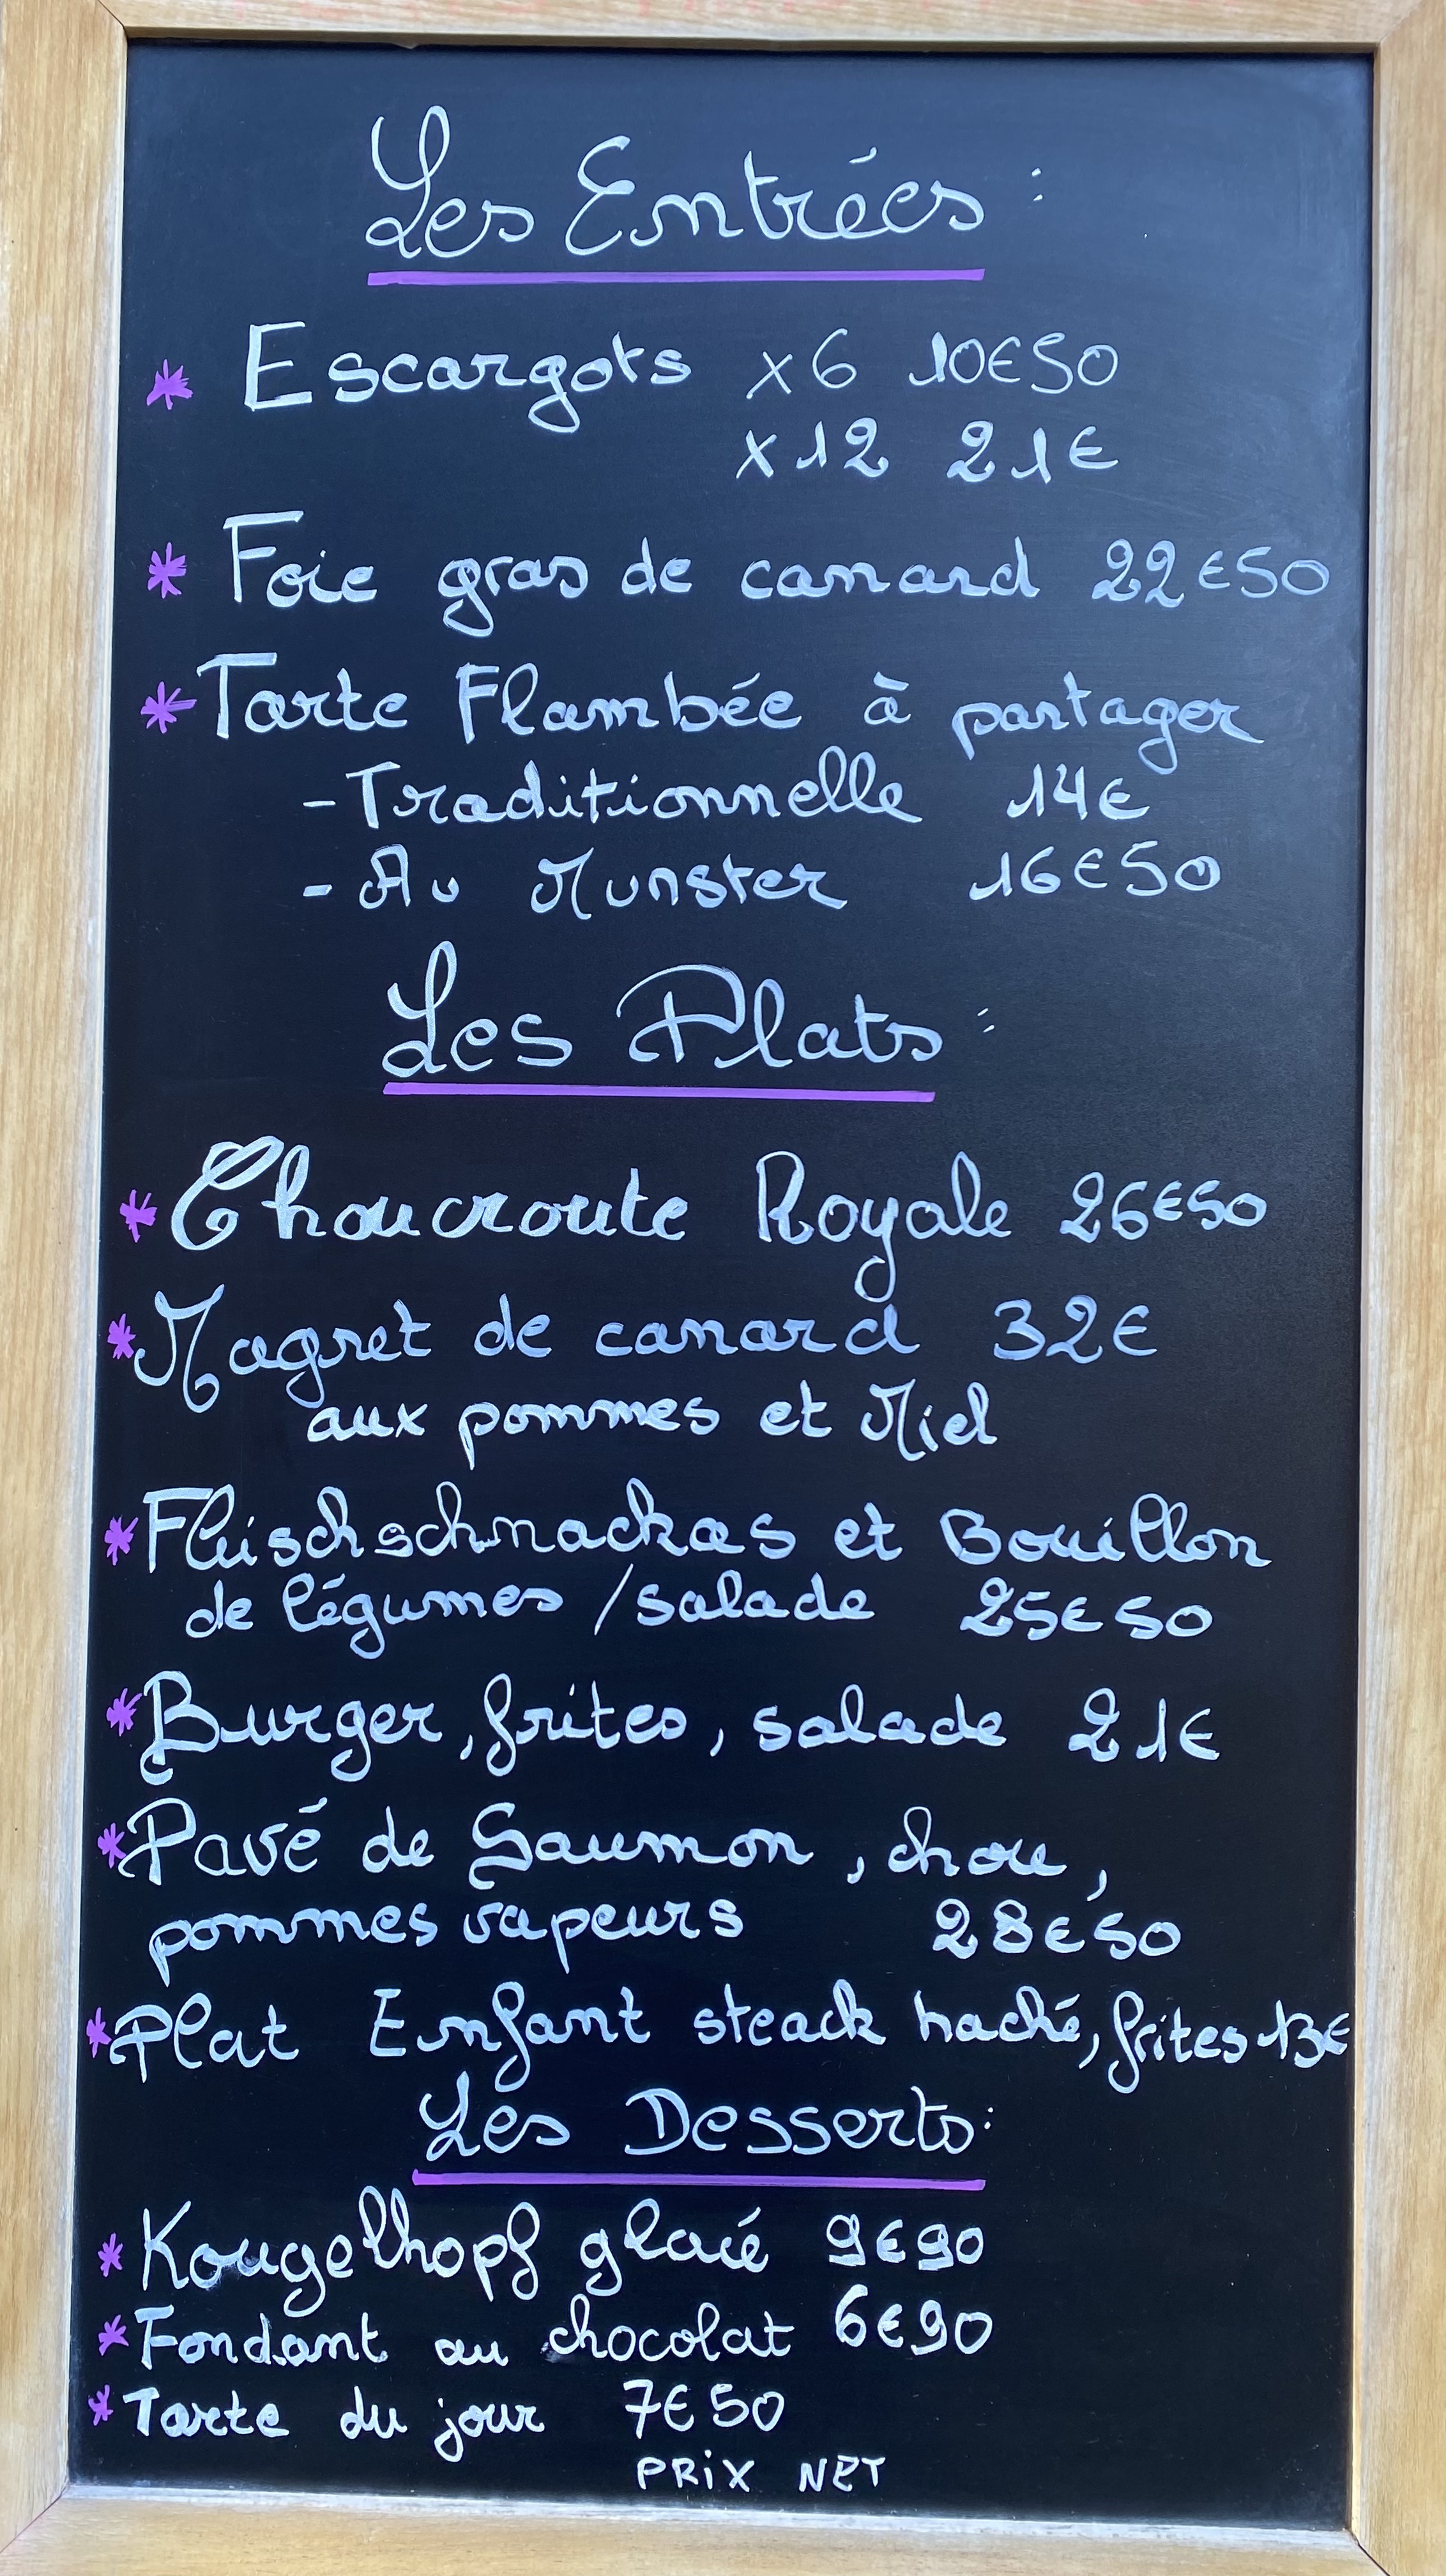 Les Entrées :
* Escargots x6 10€50
x12 21€
* Foie gras de canard 22€50
* Tarte Flambée à partager
- Traditionnelle 14€
- Au Munster 16€50
Les Plats :
* Choucroute Royale 26€50
* Magret de canard 32€
aux pommes et Miel
* Fleischschnackas et Bouillon
de légumes / salade 25€50
* Burger, frites, salade 21€
* Pavé de Saumon, chou,
pommes vapeurs 28€50
* Plat Enfant steack haché, frites 13€
Les Desserts :
* Kougelhopf glacé 9€90
* Fondant au chocolat 6€90
* Tarte du jour 7€50
PRiX NET